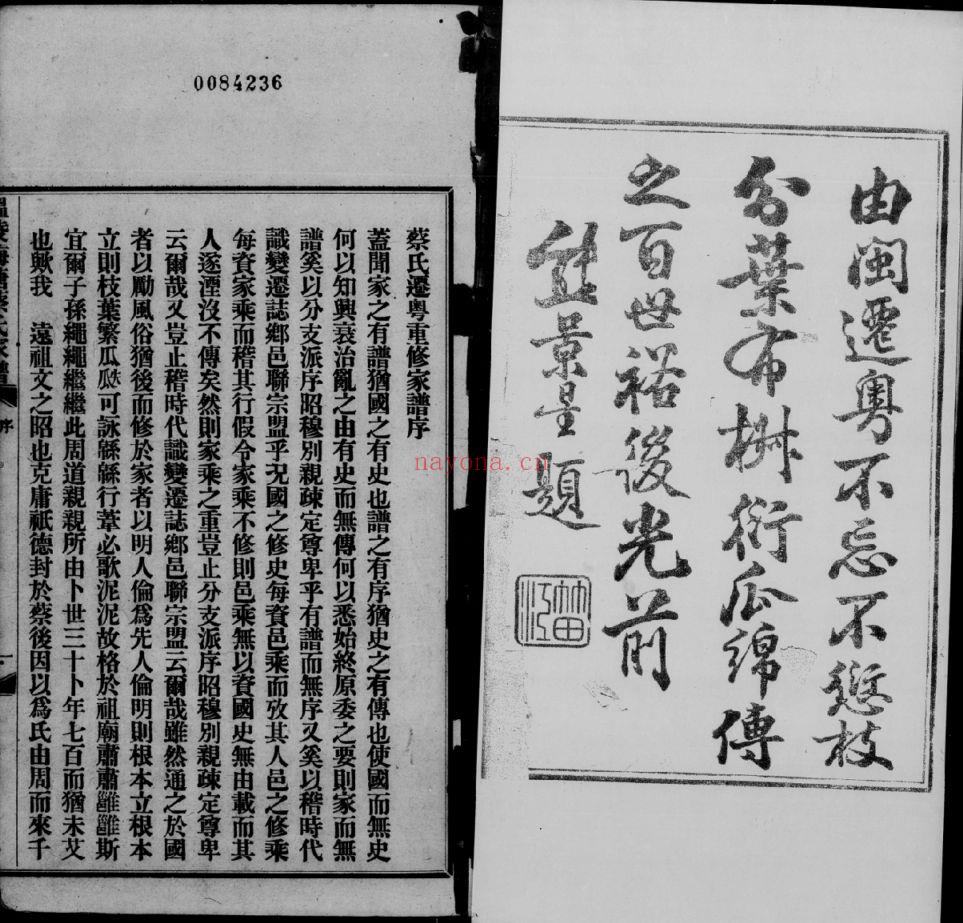 由閩遷粵不忘不愆枝
分葉布椒衍瓜綿傳
之百世裕後光前
熊景星題
0084236
蔡氏遷粵重修家譜序
蓋聞家之有譜猶國之有史也譜之有序猶史之有傳也使國而無史
何以知興衰治亂之由有史而無傳何以悉始終原委之要則家而無
譜奚以分支派序昭穆別親疎定尊卑乎有譜而無序又奚以稽時代
識變遷誌鄉邑聯宗盟乎况國之修史每資邑乘而攷其人邑之修乘
每資家乘而稽其行假令家乘不修則邑乘無以資國史無由載而其
人遂湮沒不傳矣然則家乘之重豈止分支派序昭穆別親疎定尊卑
云爾哉又豈止稽時代識變遷誌鄉邑聯宗盟云爾哉雖然通之於國
者以勵風俗猶後而修於家者以明人倫爲先人倫明則根本立根本
立則枝葉繁瓜瓞可詠緜緜行葦必歌泥泥故格於祖廟肅肅雝雝斯
宜爾子孫繩繩繼繼此周道親親所由卜世三十卜年七百而猶未艾
也歟我　遠祖文之昭也克庸祇德封於蔡後因以爲氏由周而來千
蔡氏家譜
序
一
nayona.cn